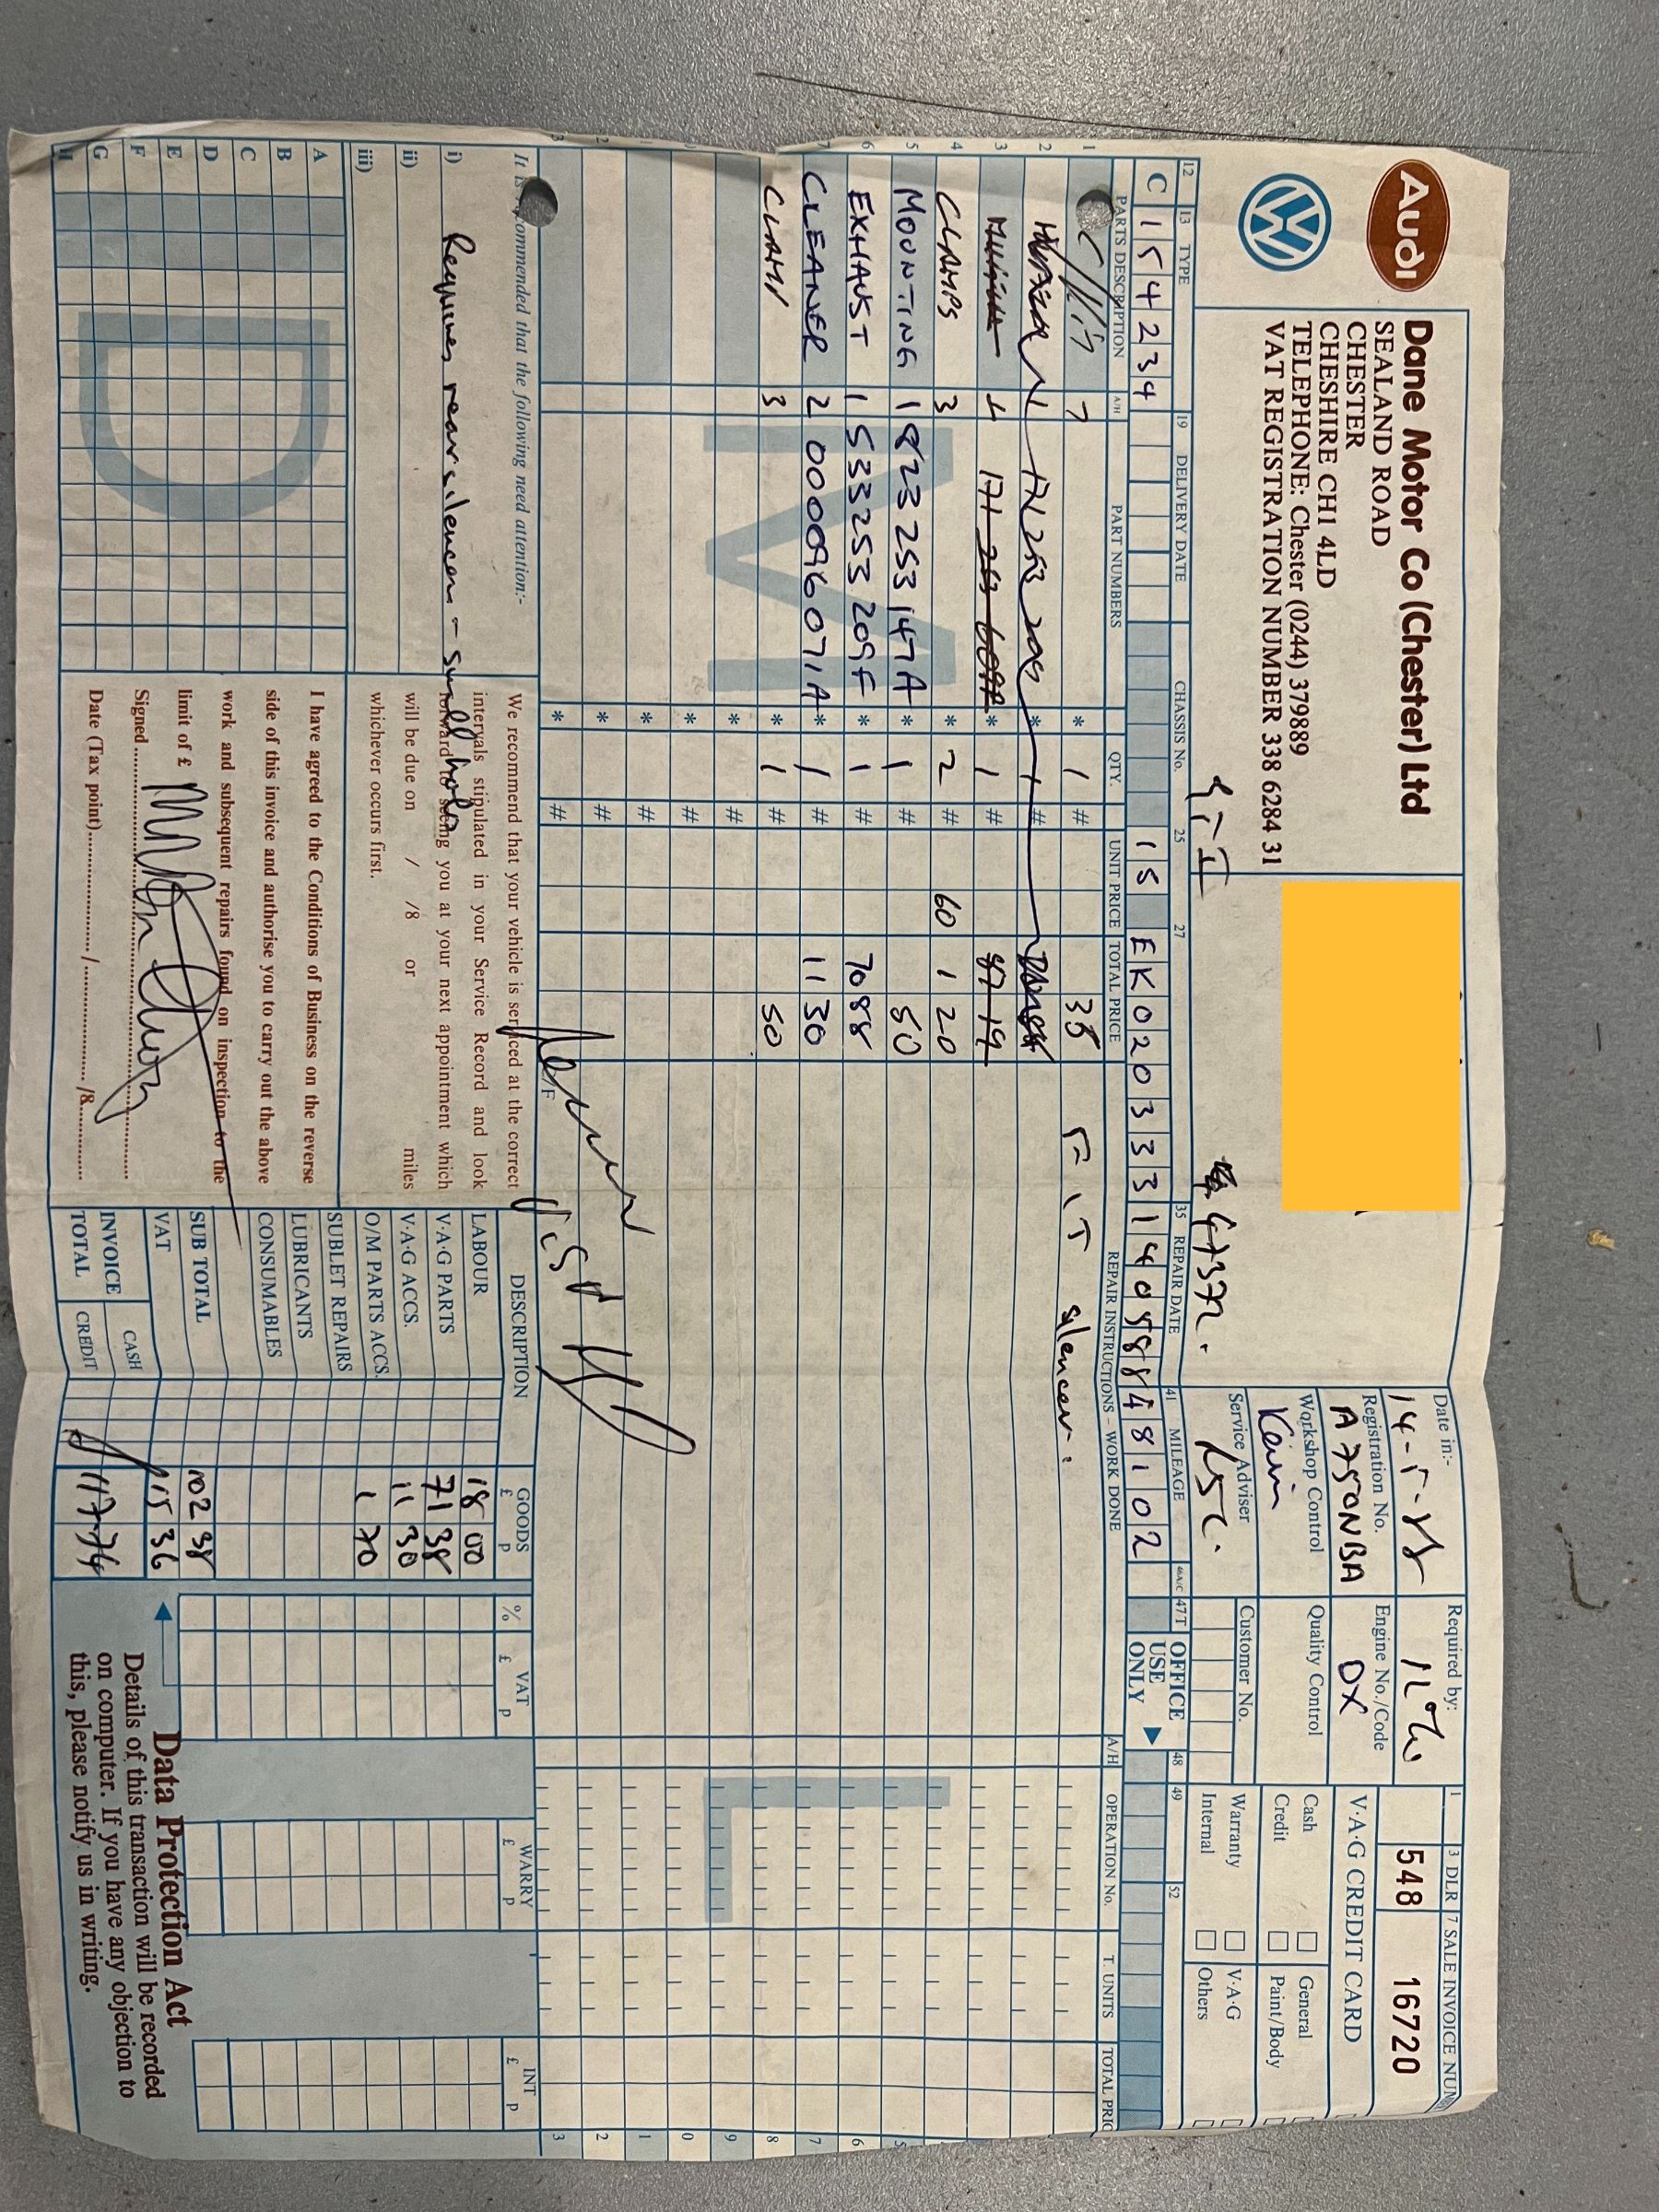 Audi
Dane Motor Co (Chester) Ltd
SEALAND ROAD
CHESTER
CHESHIRE CH1 4LD
TELEPHONE: Chester (0244) 379889
VAT REGISTRATION NUMBER 338 6284 31
Date in:-
Required by:
Registration No.
A750NBA
Engine No./Code
DX
Workshop Control
Kevin
Quality Control
Service Adviser
Customer No.
1 3 DLR 7 SALE INVOICE NUM
548 16720
V·A·G CREDIT CARD
Cash
General
Credit
Paint/Body
Warranty
V·A·G
Internal
Others
12 13 TYPE 19 DELIVERY DATE CHASSIS No. 25 27 35 REPAIR DATE 41 MILEAGE 46A/C 47T OFFICE USE ONLY 48 49 52
C 154234 15 EK020333 140588 48102
PARTS DESCRIPTION A/H PART NUMBERS QTY. UNIT PRICE TOTAL PRICE REPAIR INSTRUCTIONS – WORK DONE A/H OPERATION No. T. UNITS TOTAL PRIC
1 7 * 1 # 38 FIT silencer.
2 * 1 #
3 1 * 1 # 87 19
4 CLAMPS 3 * 2 # 60 1 20
5 MOUNTING 1 823 253 147A * 1 # 50
6 EXHAUST 1 533 253 209F * 1 # 70 88
7 CLEANER 2 000096071A * 1 # 11 30
CLAMP 3 * 1 # 50
It is recommended that the following need attention:-
i) Requires rear silencer - small hole
ii)
iii)
We recommend that your vehicle is serviced at the correct
intervals stipulated in your Service Record and look
forward to seeing you at your next appointment which
will be due on / /8 or miles
whichever occurs first.
A
B
C
D
E
F
G
H
I have agreed to the Conditions of Business on the reverse
side of this invoice and authorise you to carry out the above
work and subsequent repairs found on inspection to the
limit of £
Signed
Date (Tax point) / /8
DESCRIPTION GOODS £ p % VAT £ p WARRY £ p INT £ p
LABOUR 18 00
V·A·G PARTS 71 38
V·A·G ACCS. 11 30
O/M PARTS ACCS. 1 70
SUBLET REPAIRS
LUBRICANTS
CONSUMABLES
SUB TOTAL 102 38
VAT 15 36
INVOICE TOTAL CASH CREDIT 117-74
Data Protection Act
Details of this transaction will be recorded
on computer. If you have any objection to
this, please notify us in writing.